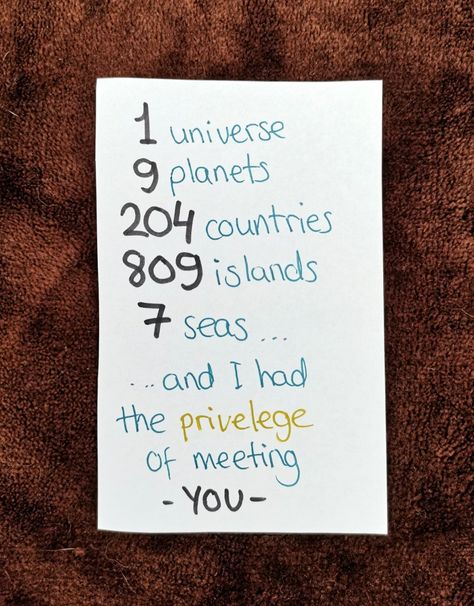 1 universe
9 planets
204 countries
809 islands
7 seas ...
... and I had
the privelege
of meeting
- YOU -